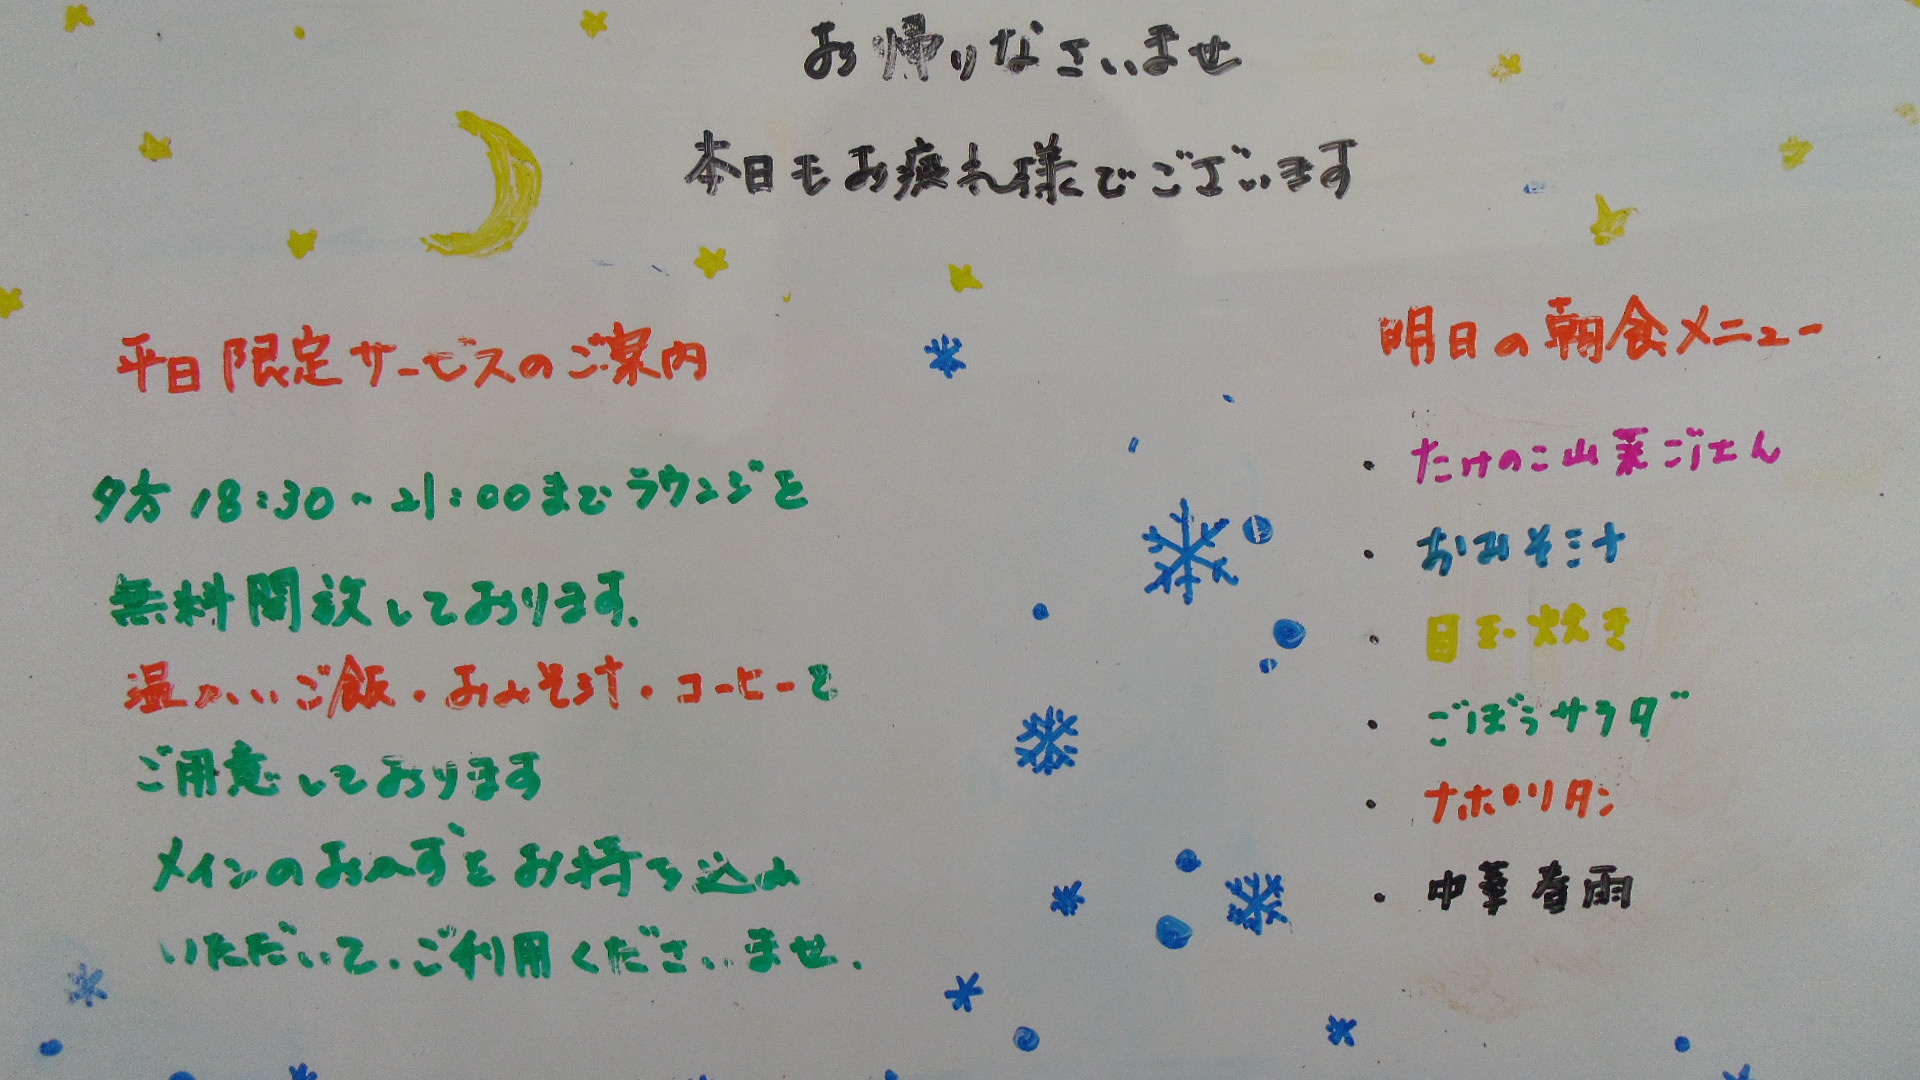 お帰りなさいませ
本日もお疲れ様でございます
平日限定サービスのご案内
夕方18:30~21:00までラウンジを
無料開放しております.
温かいご飯・おみそ汁・コーヒーを
ご用意しております
メインのおかずをお持ち込み
いただいて、ご利用くださいませ.
明日の朝食メニュー
・たけのこ山菜ごはん
・おみそ汁
・目玉焼き
・ごぼうサラダ
・ナポリタン
・中華春雨